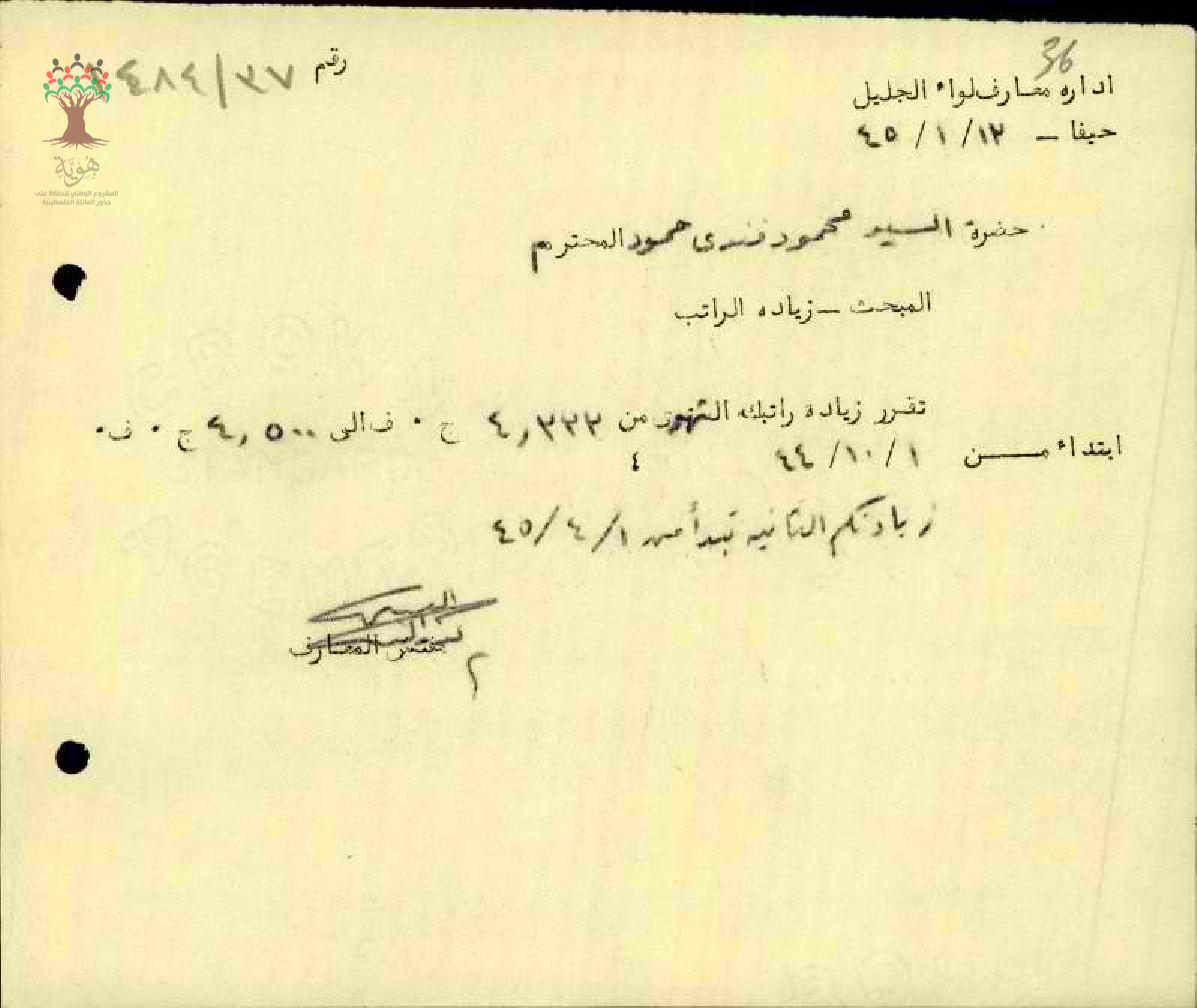 36
رقم ٣٧/٤٨٤
اداره معارف لواء الجليل
حيفا – ١٢ / ١ / ٤٥
هُوِيَّة
المشروع الوطني للحفاظ على
جذور العائلة الفلسطينية
حضرة السيد محمود فندى حمود المحترم
المبحث – زياده الراتب
تقرر زيادة راتبك الشهري من ٤,٣٣٣ ج ٠ ف الى ٤,٥٠٠ ج ٠ ف٠
ابتداء من ١ /١٠/ ٤٤
٤
زيادتكم الثانيه تبدأ من ١/ ٤ /٤٥
مفتش المعارف